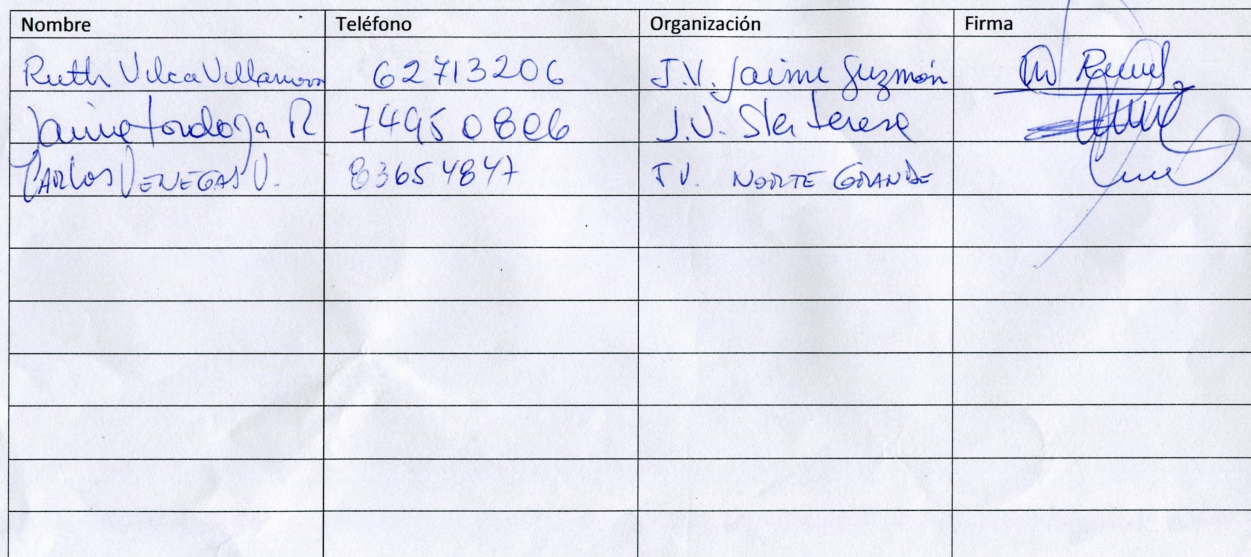 Nombre Teléfono Organización Firma
Ruth Vilca Villanueva 62713206 J.V. Jaime Guzmán
Jaime R 74950806 J.V. Sta Teresa
CARLOS VENEGAS V. 83654847 J V. NORTE GRANDE